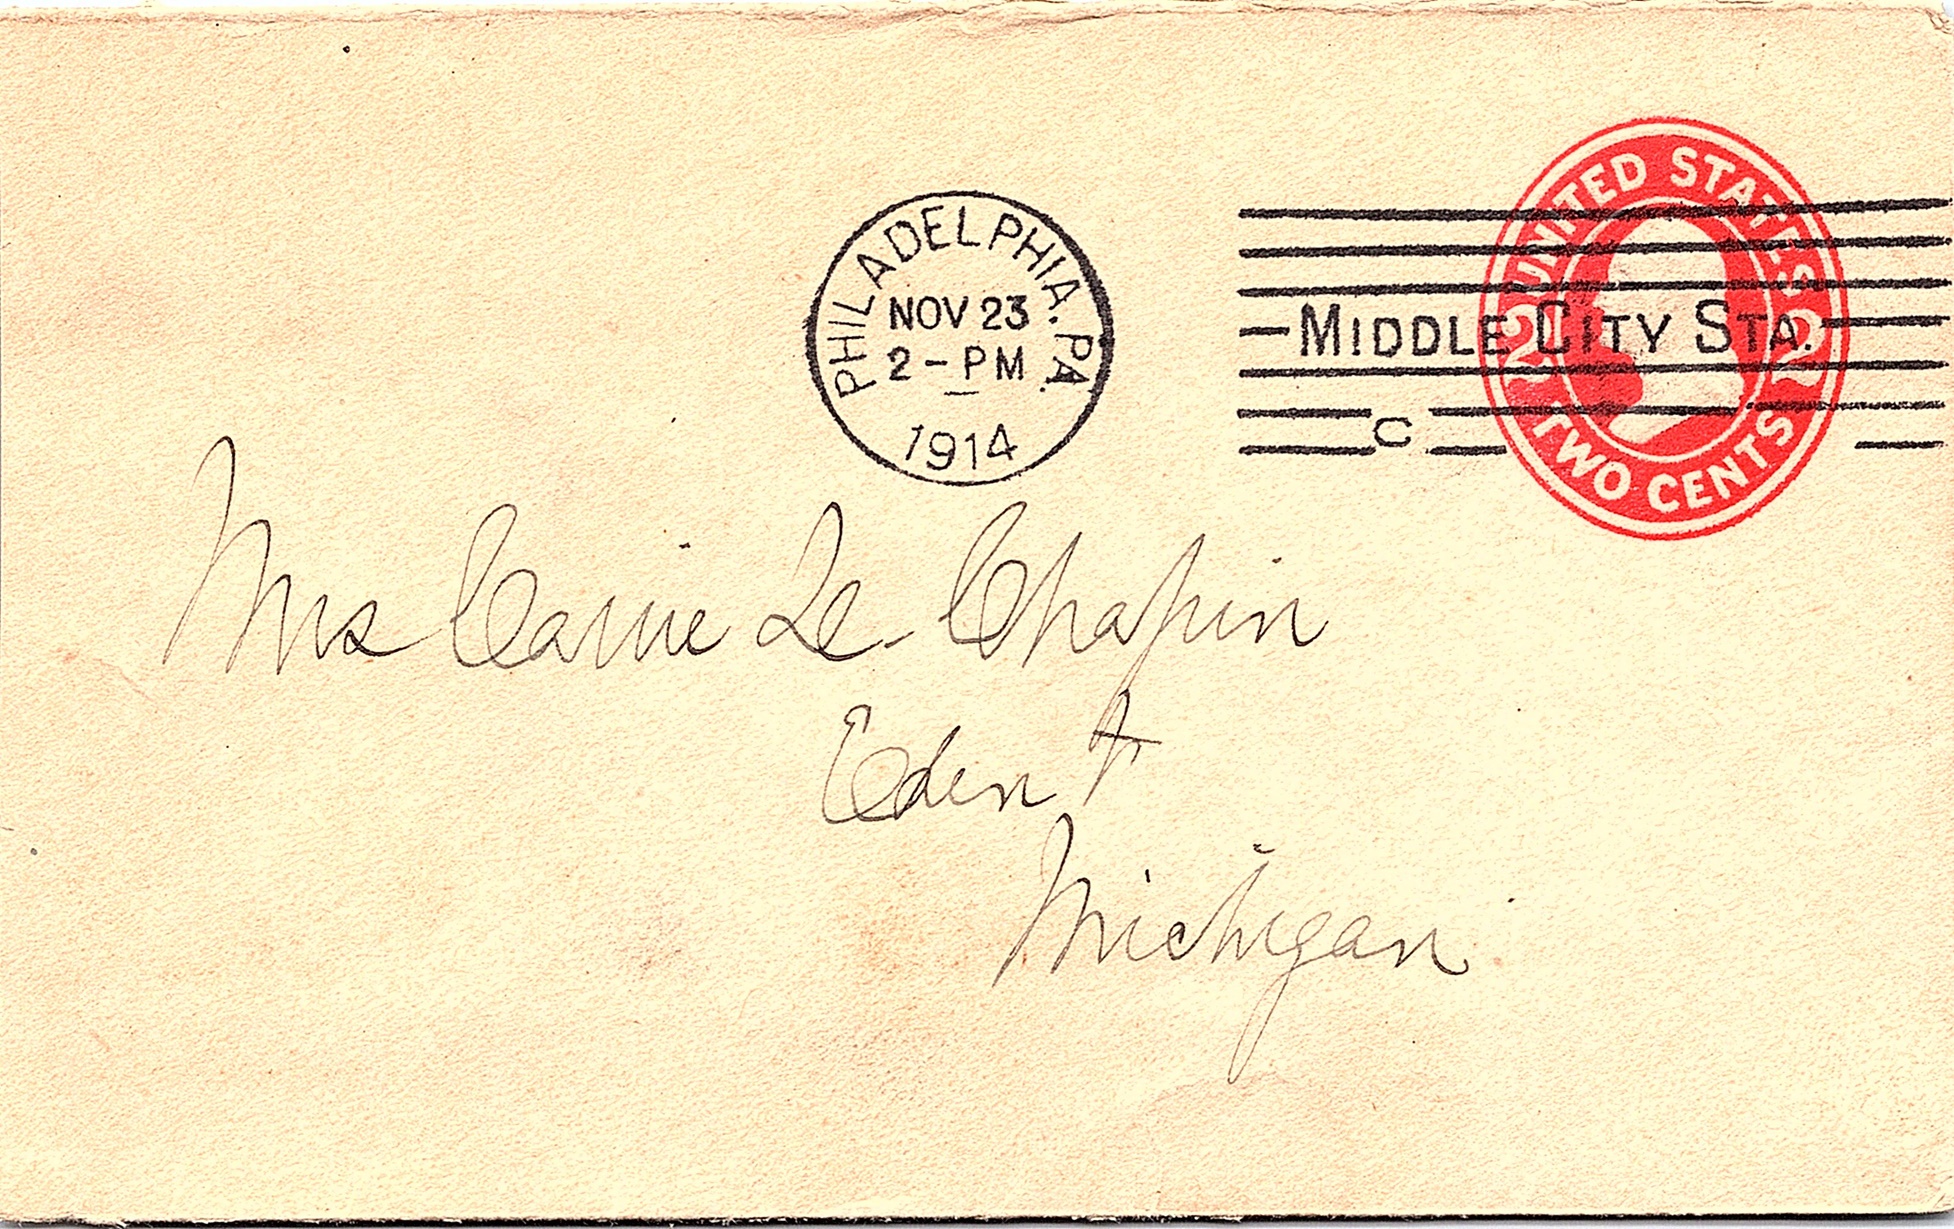 PHILADELPHIA. PA.
NOV 23
2-PM
1914
MIDDLE CITY STA.
C
UNITED STATES
2 2
TWO CENTS
Mrs Carrie Le Chapin
Eden
Michigan